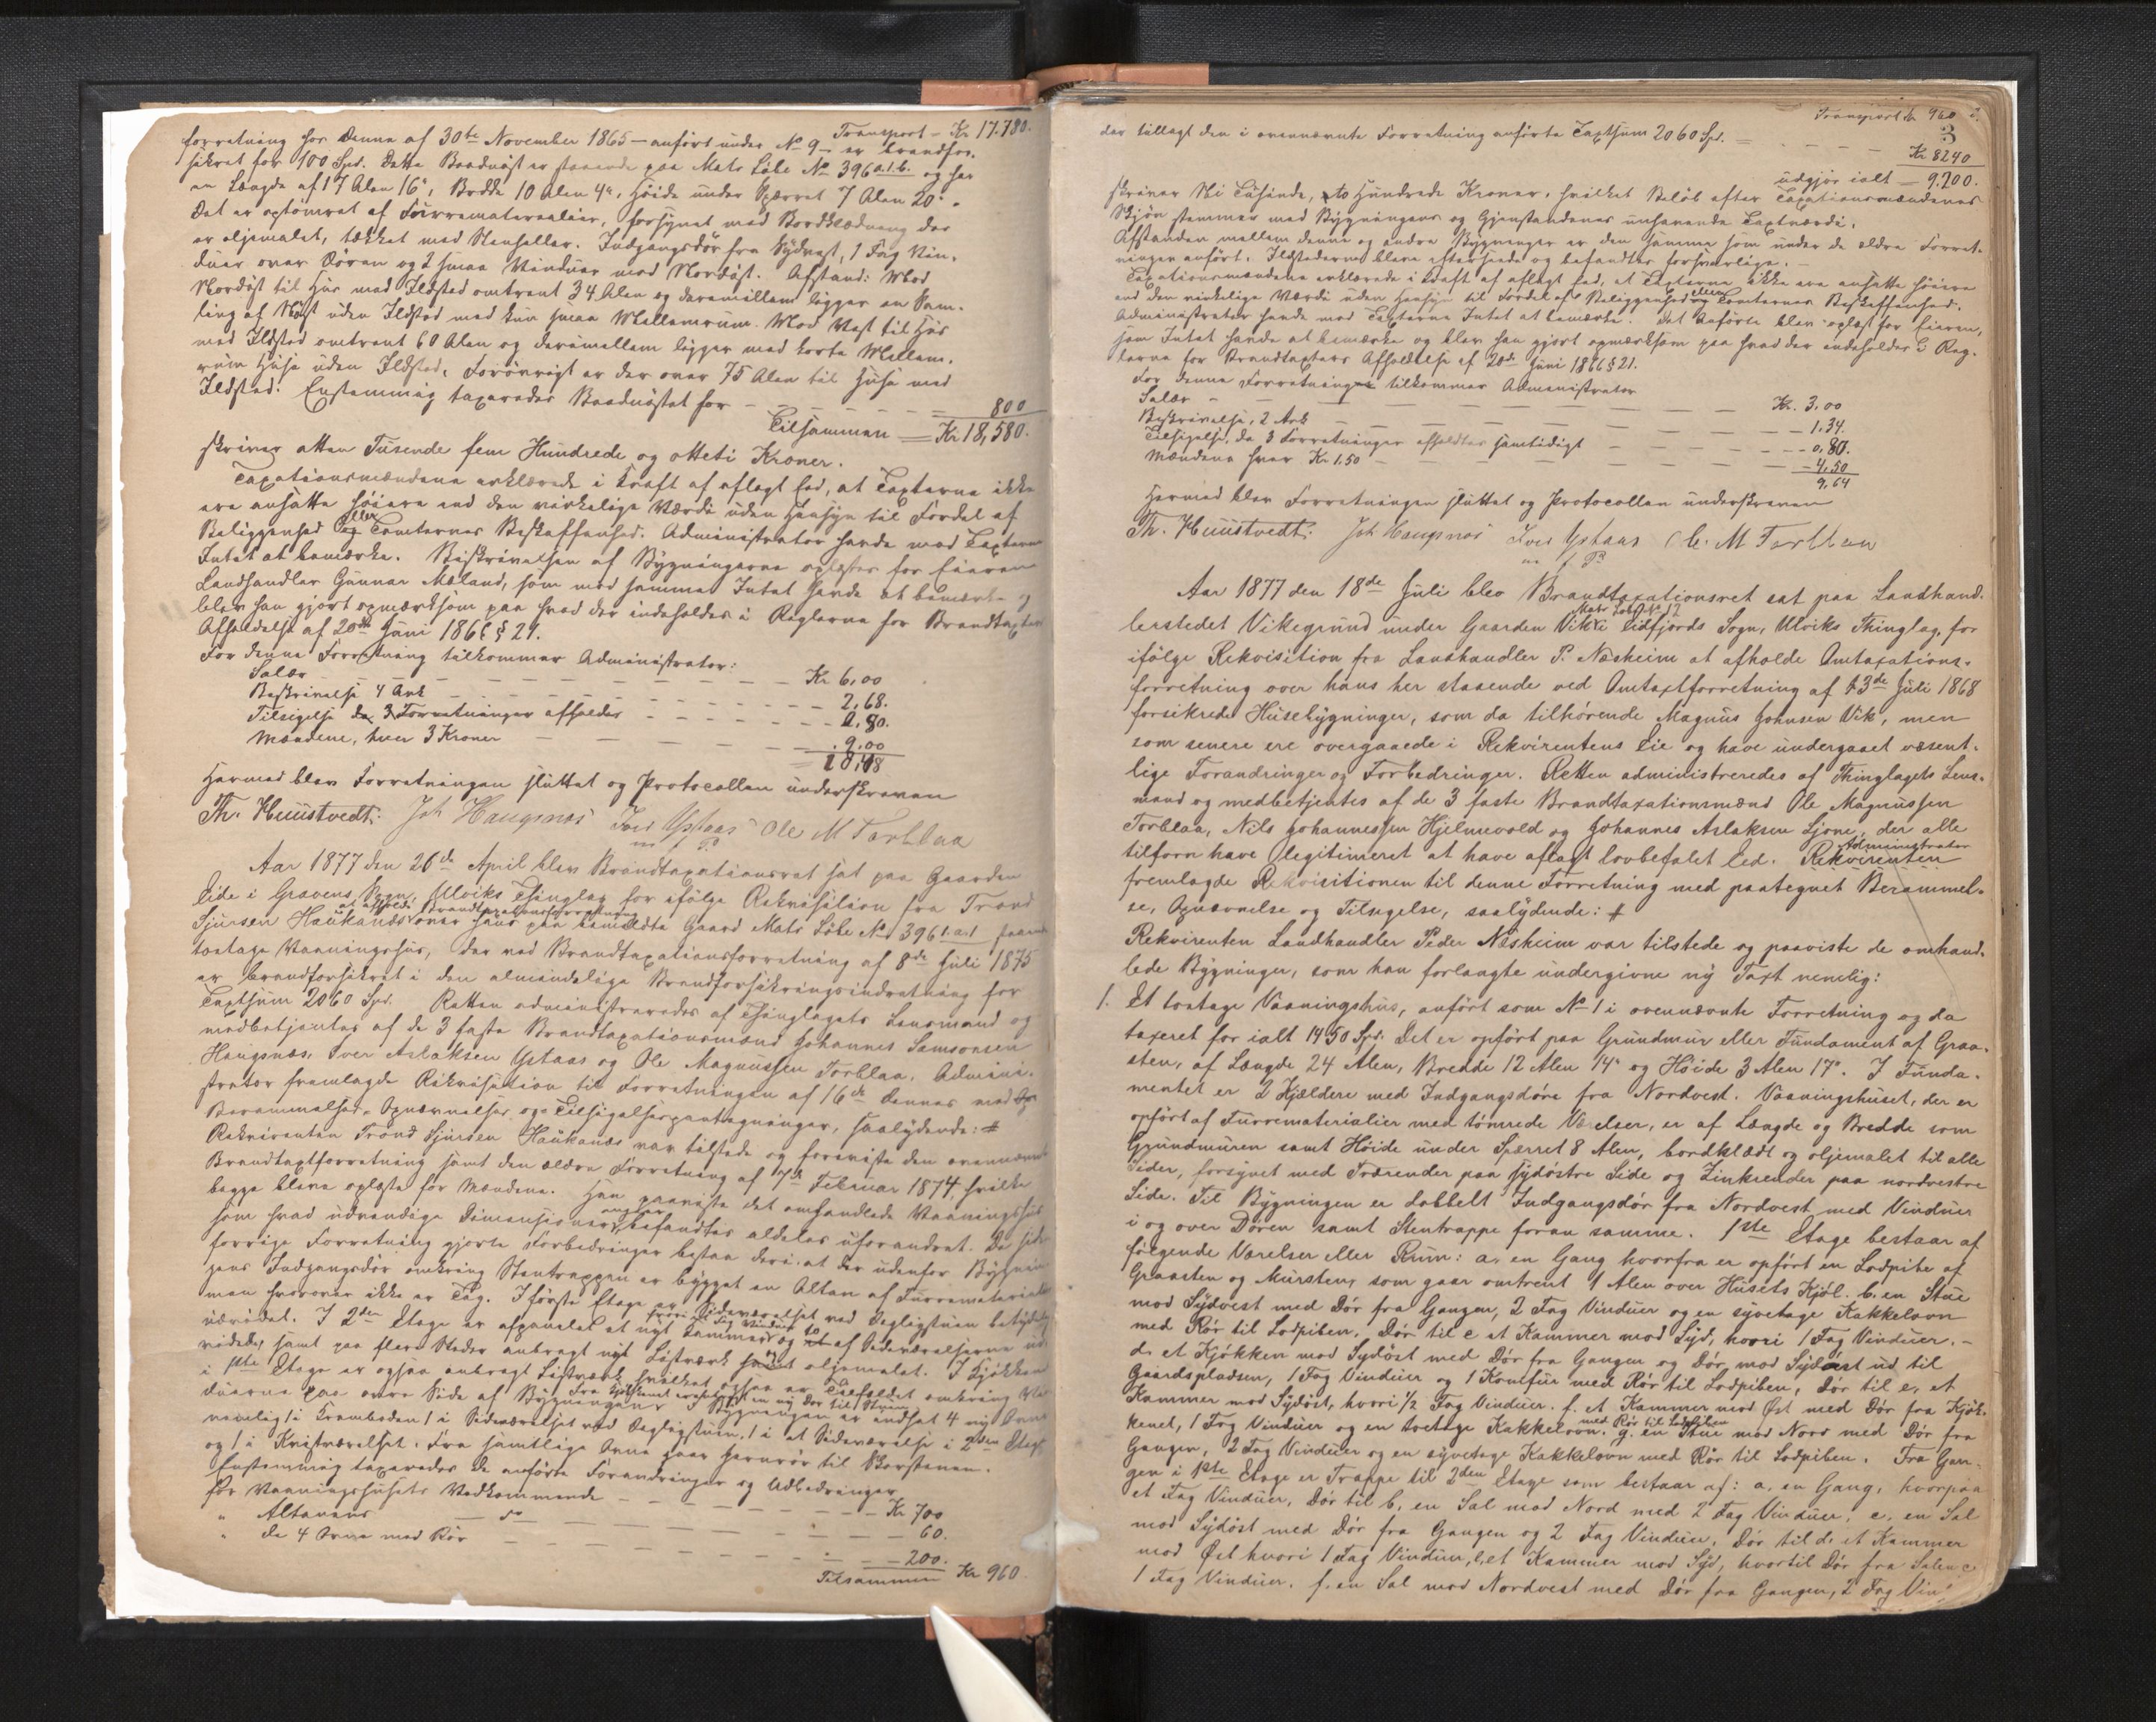 Transport – Kr 17.780.
forretning hos denne af 30te November 1865 – anført under No 9 – er brandfor-
sikret for 100 Spd. Dette Baadnøst er staaende paa Matr Løbe No 396 a.1.b. og har
en Længde af 17 Alen 16", Bredde 10 Alen 4", Høide under Spærret 7 Alen 20".
Det er optømret af Furrematerialier, forsynet med Bordklædning der
er oljemalet, tækket med Stenheller. Indgangsdør fra Sydvest, 1 Fag Vin-
duer over Døren og 2 smaa Vinduer mod Nordøst. Afstand: Mod
Nordøst til Hus med Ildsted omtrent 34 Alen og deremellem ligger en Sam-
ling af Nøst uden Ildsted med kun smaa Mellemrum. Mod Vest til Hus
med Ildsted omtrent 60 Alen og deremellem ligger med korte Mellem-
rum Huse uden Ildsted. Forøvrigt er der over 75 Alen til Huse med
Ildsted. Enstemmig taxeredes Baadnøstet for – – – 800
Tilsammen = Kr 18,580.
skriver atten Tusende fem Hundrede og otteti Kroner.
Taxationsmændene erklærede i Kraft af aflagt Ed, at Taxterne ikke
ere ansatte høiere end den virkelige Værdi uden Hensyn til Fordel af
Beliggenhed eller Tomternes Beskaffenhed. Administrator havde mod Taxterne
Intet at bemærke. Beskrivelsen af Bygningerne oplæstes for Eieren
Landhandler Gunnar Mæland, som mod samme Intet havde at bemærke og
blev han gjort opmærksom paa hvad der indeholdes i Reglerne for Brandtaxters
Afholdelse af 20de Juni 1866 § 21.
For denne Forretning tilkommer Administrator:
Salær – – – Kr. 6,00
Beskrivelse 4 Ark – – – 2,68.
Tilsigelse da 3 Forretninger afholdes – – – 0,80.
Mændene, hver 3 Kroner – – – 9,00
18,48
Hermed blev Forretningen sluttet og Protocollen underskreven
Th. Huustvedt. Joh Haugsnæs Iver Ystaas Ole M Torblaa
m f P
Aar 1877 den 26de April blev Brandtaxationsret sat paa Gaarden
Eide i Gravens Sogn, Ulviks Thinglag for ifølge Rekvisition fra Trond
at afholde Brandtaxationsforretning
Sjursen Haukanæs over hans paa bemeldte Gaard Matr Løbe No 396 1.a.1 staaende
toetage Vaaningshus, der ved Brandtaxationsforretning af 8de Juli 1875
er brandforsikret i den almindelige Brandforsikringsindretning for
Taxtsum 2060 Spd. Retten administreredes af Thinglagets Lensmand og
medbetjentes af de 3 faste Brandtaxationsmænd Johannes Samsonsen
Haugsnæs, Iver Aslaksen Ystaas og Ole Magnussen Torblaa. Admini-
strator fremlagde Rekvisition til Forretningen af 16de dennes med
Berammelses-, Opnævnelses- og Tilsigelsespaategninger, saalydende: #
Rekvirenten Trond Sjursen Haukanæs var tilstede og foreviste den ovennævnte
Brandtaxtforretning samt den ældre Forretning af 17de Februar 1874, hvilke
begge bleve oplæste for Mændene. Han paaviste det omhandlede Vaaningshus
som hvad udvendige Dimensioner angaar befandtes aldeles uforandret. De siden
forrige Forretning gjorte Forbedringer bestaa deri: at der udenfor Bygnin-
gens Indgangsdør omkring Stentrappen er bygget en Altan af Furrematerialier
men hvorover ikke er Tag. I første Etage er Sideværelset ved Dagligstuen betydelig
udvidet. I 2den Etage er afpanelet et nyt Kammer og to af Sideværelserne ud-
hvori et Fag Vinduer
videde, samt paa flere Steder anbragt nyt Listværk og oljemalet. I Kjøkken
i 1ste Etage er ogsaa anbragt Listværk hvilket ogsaa er Tilfældet omkring Vin-
duerne paa øvre Side af Bygningen. I Bygningen er indsat 4 nye Ovne
nemlig 1 i Kramboden 1 i Sideværelset ved Dagligstuen, 1 i et Sideværelse i 2den Etage
og 1 i Kvistværelset. Fra samtlige Ovne gaar Jernrør til Skorstenen.
Enstemmig taxeredes de anførte Forandringer og Udbedringer
for Vaaningshusets Vedkommende – – – Kr 700
" Altanens – do – – – 60.
" de 4 Ovne med Rør – – – 200.
Tilsammen Kr 960.
Transport Kr 960
3
der tillagt den i ovennævnte Forretning anførte Taxtsum 2060 Spd. = – – – Kr 8240
udgjør ialt – 9.200.
skriver Ni Tusinde, to Hundrede Kroner, hvilket Beløb efter Taxationsmændenes
Skjøn stemmer med Bygningens og Gjenstandenes nuhavende Taxtværdi.
Afstanden mellem denne og andre Bygninger er den samme som under de ældre Forret-
ninger anført. Ildstederne bleve efterseede og befandtes forsvarlige.
Taxationsmændene erklærede i Kraft af aflagt Ed, at Taxterne ikke ere ansatte høiere
end den virkelige Værdi uden Hensyn til Fordel af Beliggenhed eller Tomternes Beskaffenhed.
Administrator havde mod Taxterne Intet at bemærke. Det Anførte blev oplæst for Eieren,
som Intet havde at bemærke og blev han gjort opmærksom paa hvad der indeholdes i Reg-
lerne for Brandtaxters Afholdelse af 20de Juni 1866 § 21.
For denne Forretning tilkommer Administrator
Salær – – – Kr. 3,00
Beskrivelse, 2 Ark – – – 1,34.
Tilsigelse, da 3 Forretninger afholdtes samtidigt – – – 0,80.
Mændene hver Kr 1,50 – – – 4,50
9,64
Hermed blev Forretningen sluttet og Protocollen underskreven
Th. Huustvedt. Joh Haugsnæs Iver Ystaas Ole M Torblaa
m f P
Aar 1877 den 18de Juli blev Brandtaxationsret sat paa Landhand-
Matr Løb No 12
lerstedet Vikegrund under Gaarden Vik i Eidfjords Sogn, Ulviks Thinglag, for
ifølge Rekvisition fra Landhandler P. Næsheim at afholde Omtaxations-
forretning over hans her staaende ved Omtaxtforretning af 13de Juli 1868
forsikrede Husebygninger, som da tilhørende Magnus Johnsen Vik, men
som senere ere overgaaede i Rekvirentens Eie og have undergaaet væsent-
lige Forandringer og Forbedringer. Retten administreredes af Thinglagets Lens-
mand og medbetjentes af de 3 faste Brandtaxationsmænd Ole Magnussen
Torblaa, Nils Johannessen Hjelmevold og Johannes Aslaksen Ljone, der alle
tilforn have legitimeret at have aflagt lovbefalet Ed. Rekvirenten
Administrator
fremlagde Rekvisitionen til denne Forretning med paategnet Berammel-
se, Opnævnelse og Tilsigelse, saalydende: #
Rekvirenten Landhandler Peder Næsheim var tilstede og paaviste de omhand-
lede Bygninger, som han forlangte undergivne ny Taxt nemlig:
1. Et toetage Vaaningshus, anført som No 1 i ovennævnte Forretning og da
taxeret for ialt 1450 Spd. Det er opført paa Grundmur eller Fundament af Graa-
sten, af Længde 24 Alen, Bredde 12 Alen 14" og Høide 3 Alen 17". I Funda-
mentet er 2 Kjældere med Indgangsdøre fra Nordvest. Vaaningshuset, der er
opført af Furrematerialier med tømrede Værelser, er af Længde og Bredde som
Grundmuren samt Høide under Spærret 8 Alen, bordklædt og oljemalet til alle
Sider, forsynet med Trærender paa sydøstre Side og Zinkrender paa nordvestre
Side. Til Bygningen er dobbelt Indgangsdør fra Nordvest med Vinduer
i og over Døren samt Stentrappe foran samme. 1ste Etage bestaar af
følgende Værelser eller Rum: a, en Gang hvorfra er opført en Lodpibe af
Graasten og Mursten, som gaar omtrent 1 Alen over Husets Kjøl. b. en Stue
mod Sydvest med Dør fra Gangen, 2 Fag Vinduer og en syvetage Kakkelovn
med Rør til Lodpiben. Dør til c et Kammer mod Syd, hvori 1 Fag Vinduer. –
d. et Kjøkken mod Sydøst med Dør fra Gangen og Dør mod Sydøst ud til
Gaardspladsen, 1 Fag Vinduer og 1 Komfur med Rør til Lodpiben, Dør til e, et
Kammer mod Sydøst, hvori 1/2 Fag Vinduer. f. et Kammer mod Øst med Dør fra Kjøk-
kenet, 1 Fag Vinduer og en toetage Kakkelovn med Rør til Lodpiben. g. en Stue mod Nord med Dør fra
Gangen, 2 Fag Vinduer og en syvetage Kakkelovn med Rør til Lodpiben. Fra Gan-
gen i 1ste Etage er Trappe til 2den Etage som bestaar af: a, en Gang, hvorpaa
et Fag Vinduer, Dør til b, en Sal mod Nord med 2 Fag Vinduer, c, en Sal
mod Sydøst med Dør fra Gangen og 2 Fag Vinduer, Dør til d. et Kammer
mod Øst hvori 1 Fag Vinduer, e, et Kammer mod Syd, hvortil Dør fra Salen c
1 Fag Vinduer. f. en Sal mod Nordvest med Dør fra Gangen, 2 Fag Vin-